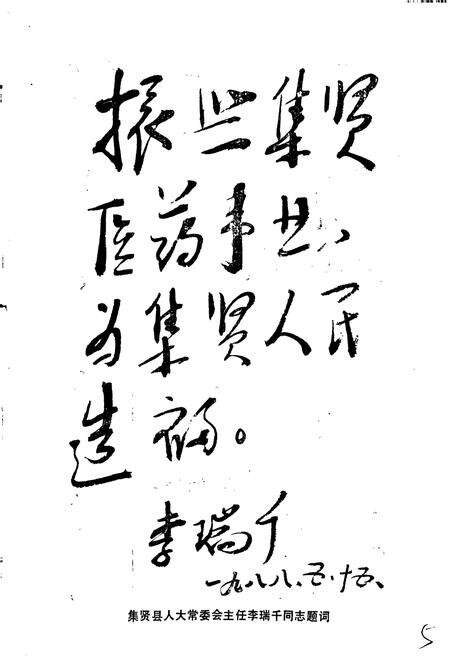 振兴集贤
医药事业、
为集贤人民
造福。
李瑞千
一九八八.五.十五.
集贤县人大常委会主任李瑞千同志题词
5